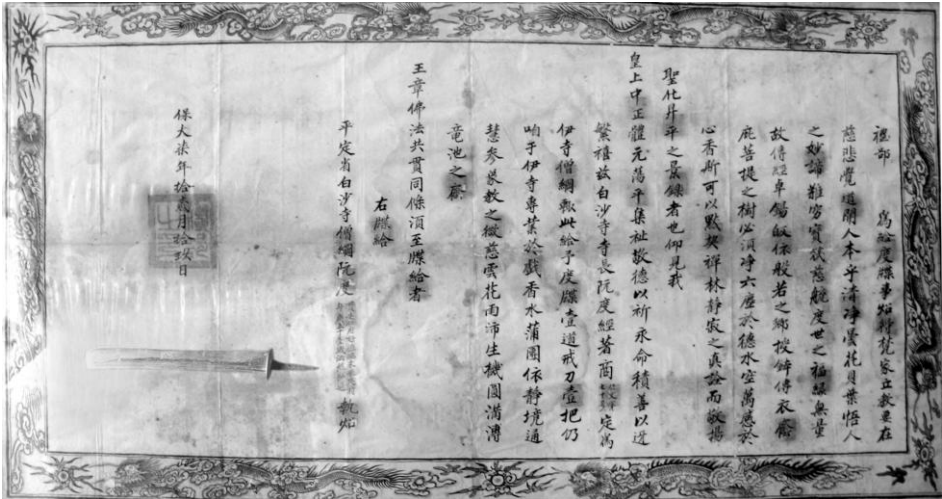 禮部　為給度牒事炤得梵家立教要在
慈悲覺道開人本乎清淨曇花貝葉悟人
之妙諦雖劳寶筏慈航度世之福緣無量
故傳燈卓錫皈依般若之鄉授鉢傳衣
庇菩提之樹必須淨六塵於德水空萬慮於
心香斯可以默契祥林靜寂之真詮而敬揚
聖化昇平之景錄者也仰見我
皇上中正體元蕩平集祉敬德以祈永命積善以迓
繁禧玆白沙寺寺長阮度經著商定為
伊寺僧綱輒此給予度牒壹道戒刀壹把仍
咱于伊寺專業於戲香水蒲團依靜境通
慧參裴教之微慈雲花雨沛生機圓滿溥
竜池之蔭
王章佛法共貫同條須至牒給者
右牒給
平定省白沙寺僧綱阮度執炤
保大柒年拾貳月拾玖日